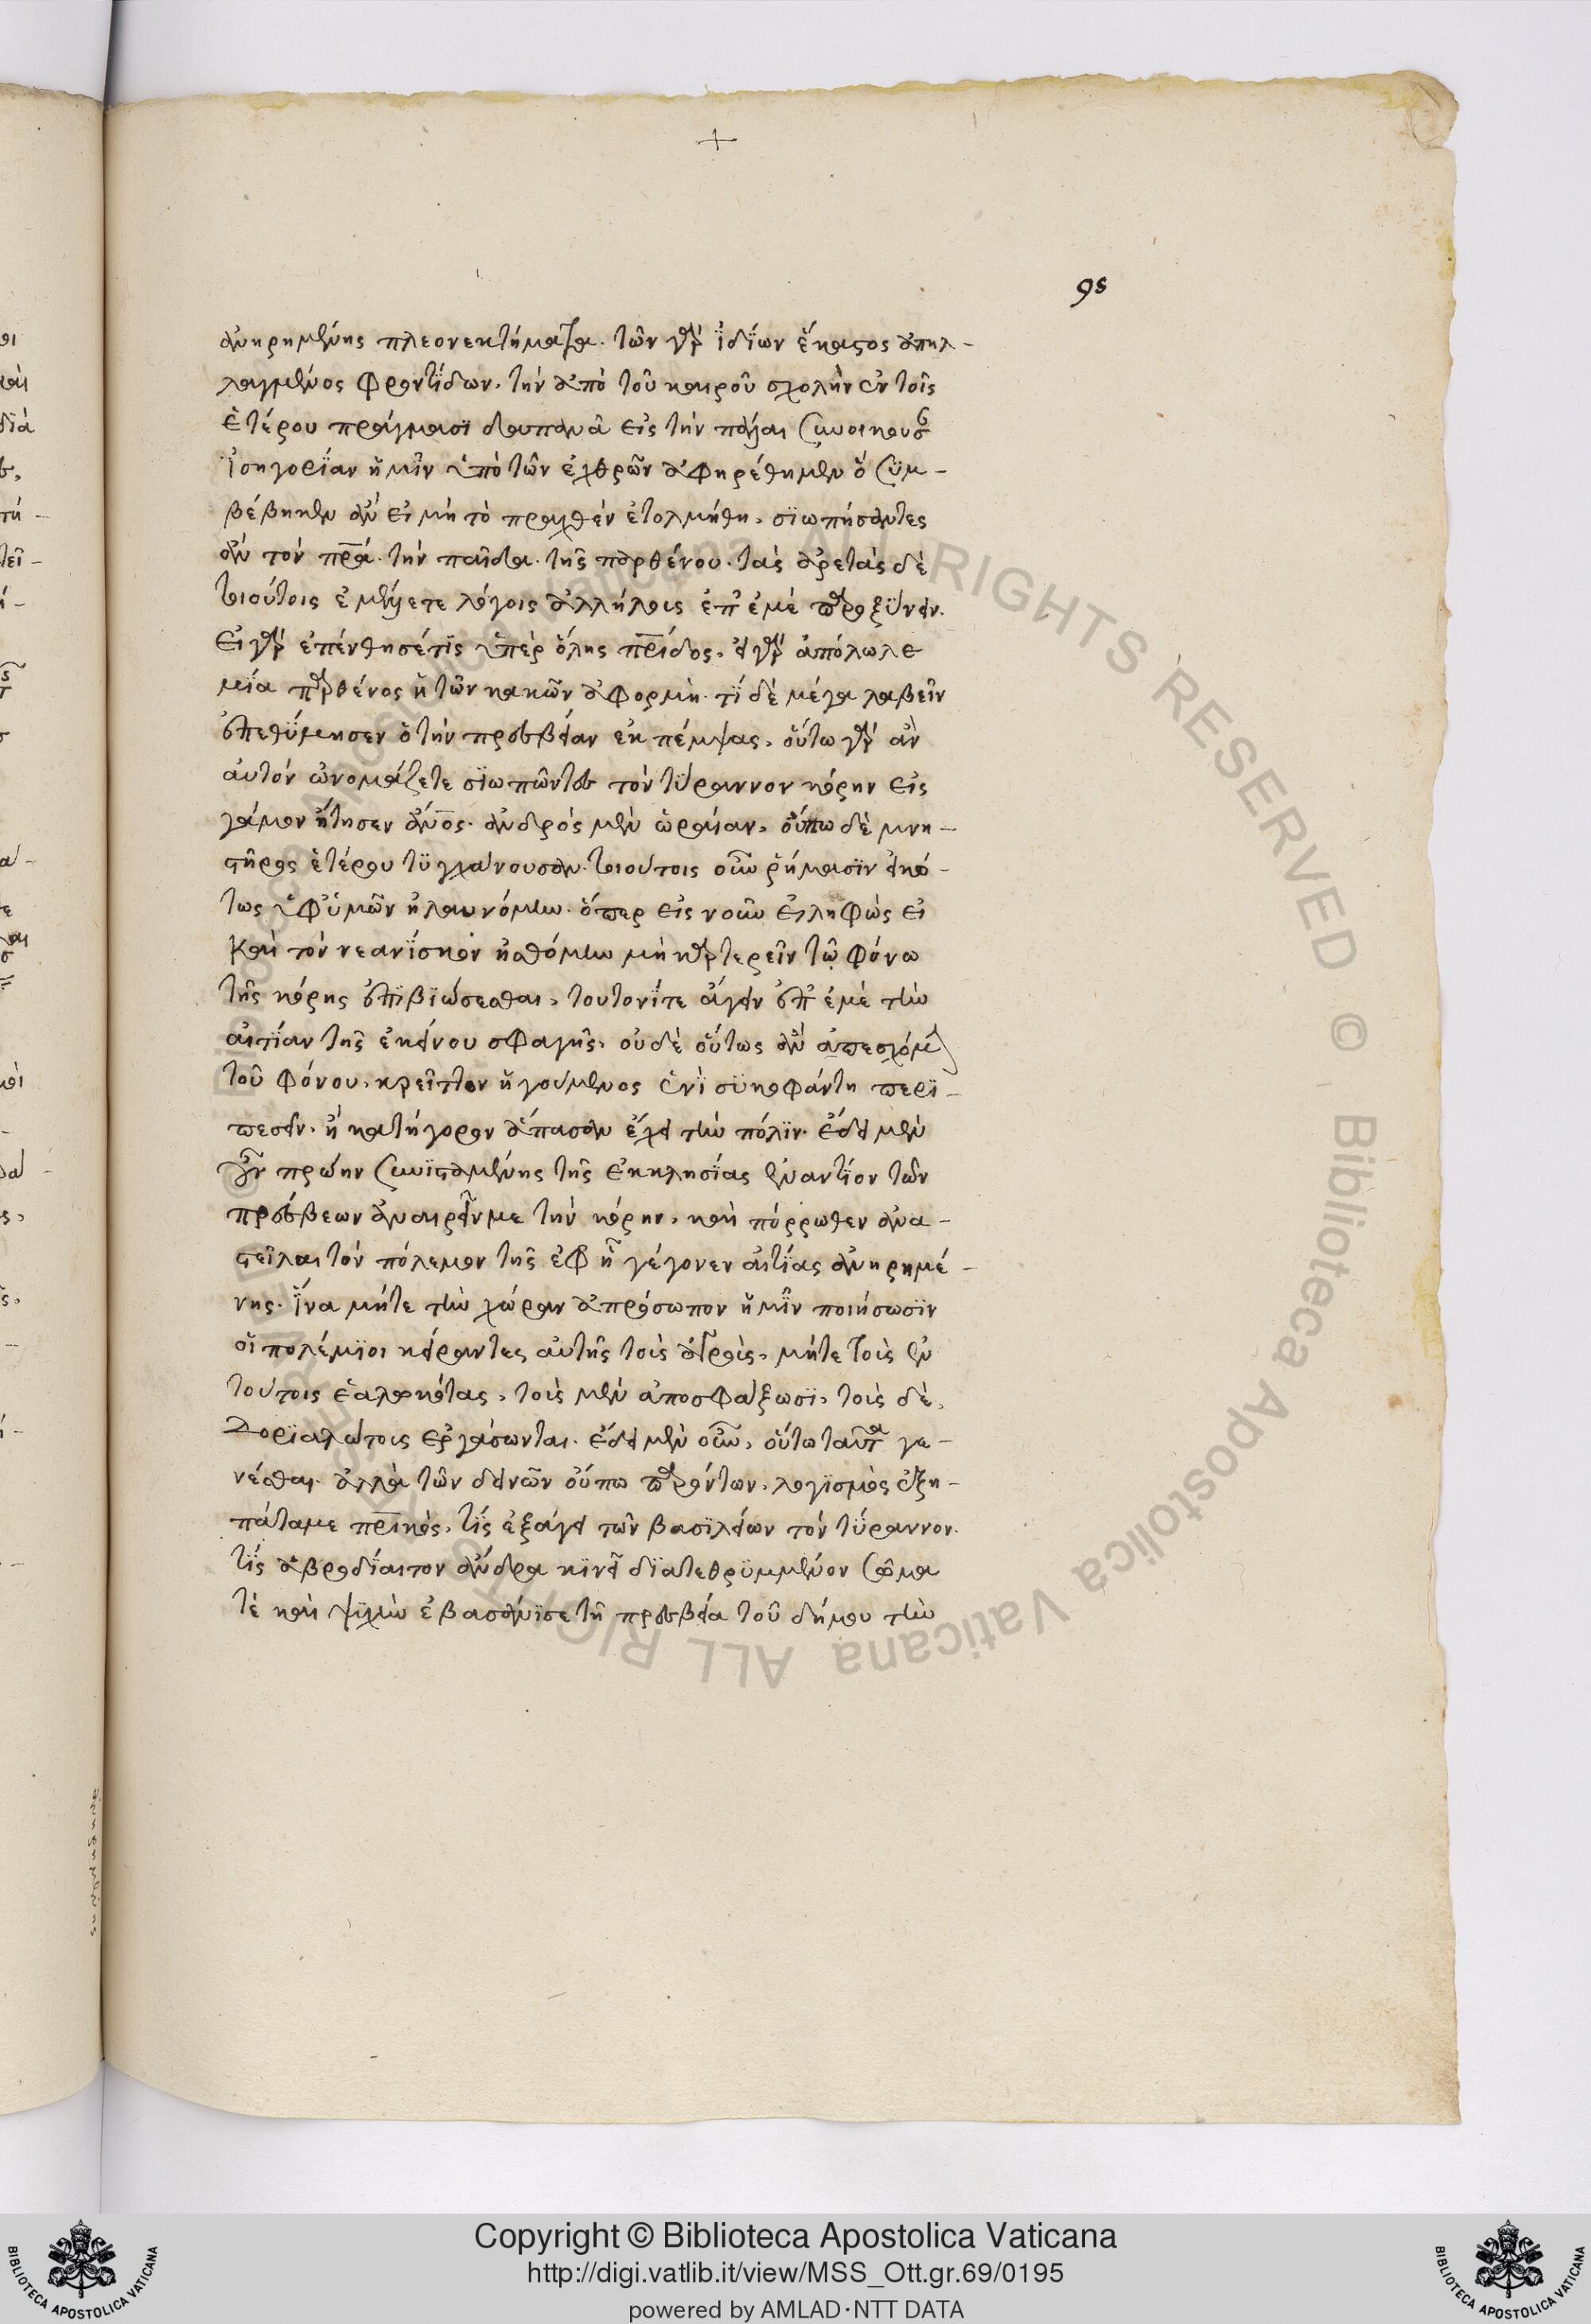 95
ἀνῃρημένης πλεονεκτήματα. τῶν γὰρ ἰδίων ἕκαστος ἀπηλ-
λαγμένος φροντίδων, τὴν ἀπὸ τοῦ καιροῦ σχολὴν ἐν τοῖς
ἑτέρου πράγμασι δαπανᾷ εἰς τὴν πάλαι
ἰσηγορίαν ἡμῖν ὑπὸ τῶν ἐχθρῶν ἀφηρέθημεν ὃ συμ-
βέβηκεν ἂν εἰ μὴ τὸ πραχθὲν ἐτολμήθη, σιωπήσαντες
ἂν τὸν πρα. τὴν παῖδα. τῆς παρθένου. τὰς ἀρετὰς δὲ
τοιούτοις ἐμέλλετε λόγοις ἀλλήλοις ἐπ' ἐμὲ παροξύνειν.
εἰ γὰρ ἐπένθησέ τις ὑπὲρ ὅλης πριδος, εἰ γὰρ ἀπόλωλε
μία παρθένος ἡ τῶν κακῶν ἀφορμή. τί δὲ μέγα λαβεῖν
ἐπεθύμησεν ὁ τὴν πρεσβείαν ἐκπέμψας, οὕτω γὰρ ἂν
αὐτὸν ὠνομάζετε σιωπῶντες τὸν τύραννον κόρην εἰς
γάμον ᾔτησεν ἀνος. ἀνδρὸς μὲν ὡραίαν, οὔπω δὲ μνη-
στῆρος ἑτέρου τυγχάνουσαν. τοιούτοις οὖν ῥήμασιν εἰκό-
τως ὑφ' ὑμῶν ἠλαυνόμην. ὅπερ εἰς νοῦν εἰληφὼς εἰ
καὶ τὸν νεανίσκον ᾐσθόμην μὴ καρτερεῖν τῷ φόνῳ
τῆς κόρης ἐπιβιώσεσθαι, τουτονί τε ἄγειν ἐπ' ἐμὲ τὴν
αἰτίαν τῆς ἐκείνου σφαγῆς, οὐδὲ οὕτως ἂν ἀπεσχόμην
τοῦ φόνου, κρεῖττον ἡγούμενος ἑνὶ συκοφάντῃ περι-
πεσεῖν, ἢ κατήγορον ἅπασαν ἔχειν τὴν πόλιν. ἔδει μὲν
οὖν πρώην συνισταμένης τῆς ἐκκλησίας ἐναντίον τῶν
πρέσβεων ἀναιρεῖν με τὴν κόρην, καὶ πόρρωθεν ἀνα-
στεῖλαι τὸν πόλεμον τῆς ἐφ' ᾗ γέγονεν αἰτίας ἀνῃρημέ-
νης. ἵνα μήτε τὴν χώραν ἀπρόσωπον ἡμῖν ποιήσωσιν
οἱ πολέμιοι κείραντες αὐτῆς τοὺς ἀγρούς, μήτε τοὺς ἐν
τούτοις ἑαλωκότας, τοὺς μὲν ἀποσφάξωσι, τοὺς δὲ,
δοριαλώτους ἐργάσωνται. ἔδει μὲν οὖν, οὕτω ταῦτα γε-
νέσθαι. ἀλλὰ τῶν δεινῶν οὔπω παρόντων, λογισμὸς ἐξη-
πάτα με πρικός, τίς ἐξάγει τῶν βασιλείων τὸν τύραννον.
τίς ἁβροδίαιτον ἄνδρα κινεῖ διατεθρυμμένον σῶμα
τὲ καὶ ψυχὴν ἐβασάνισε τῇ πρεσβείᾳ τοῦ δήμου τὴν
Copyright © Biblioteca Apostolica Vaticana
http://digi.vatlib.it/view/MSS_Ott.gr.69/0195
powered by AMLAD·NTT DATA